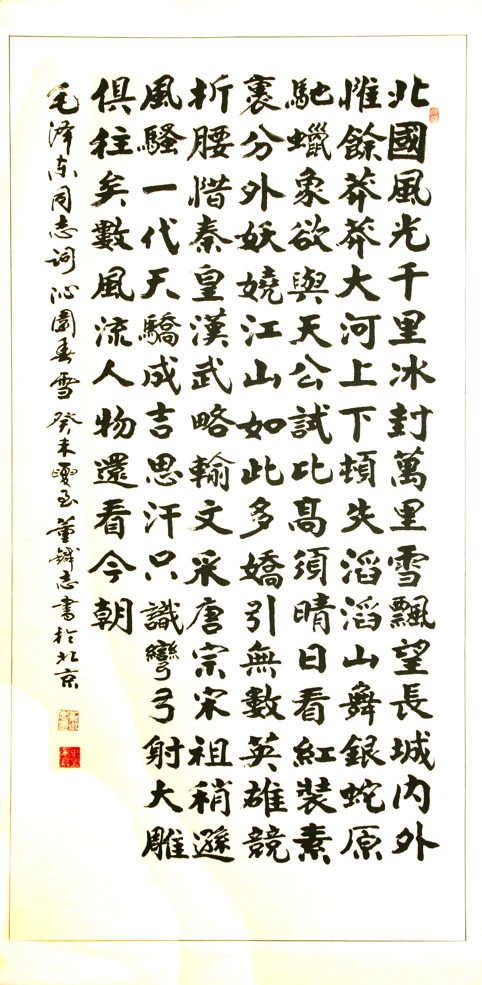 北國風光千里冰封萬里雪飄望長城内外
惟餘莽莽大河上下頓失滔滔山舞銀蛇原
馳蠟象欲與天公試比高須晴日看紅裝素
裹分外妖嬈江山如此多嬌引無數英雄競
折腰惜秦皇漢武略輸文采唐宗宋祖稍遜
風騷一代天驕成吉思汗只識彎弓射大雕
俱往矣數風流人物還看今朝
毛泽东同志词沁園春雪癸未夏至董志書於北京